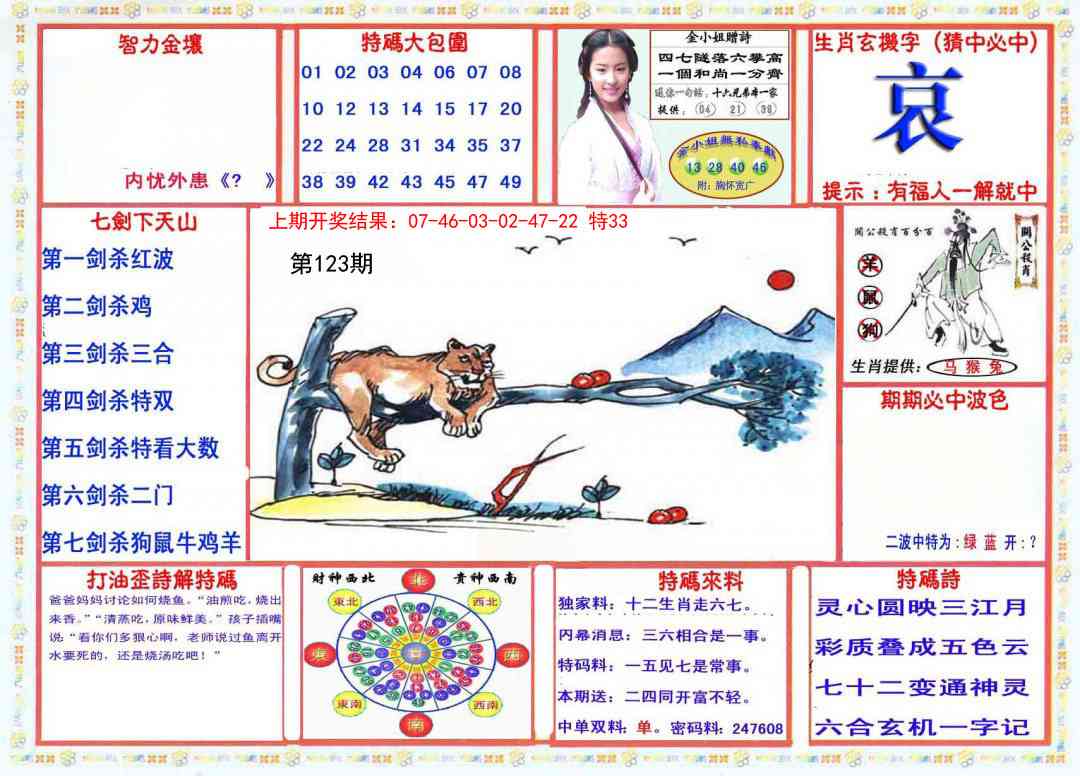 智力金壤
内忧外患《?　》
特碼大包圍
01 02 03 04 06 07 08
10 12 13 14 15 17 20
22 24 28 31 34 35 37
38 39 42 43 45 47 49
金小姐贈詩
四七隧落六攀高
一個和尚一分齊
十六兄弟本一家
提供: 04 21 38
金小姐無私奉獻
13 28 40 46
附:胸怀宽广
生肖玄機字（猜中必中）
哀
提示：有福人一解就中
七劍下天山
第一剑杀红波
第二剑杀鸡
第三剑杀三合
第四剑杀特双
第五剑杀特看大数
第六剑杀二门
第七剑杀狗鼠牛鸡羊
上期开奖结果：07-46-03-02-47-22 特33
第123期
關公殺肖百分百
關公殺肖
羊
鼠
狗
生肖提供: 马 猴 兔
期期必中波色
二波中特为：绿 蓝 开：?
打油歪詩解特碼
爸爸妈妈讨论如何烧鱼。“油煎吃，烧出
来香。”“清蒸吃，原味鲜美。”孩子插嘴
说：“看你们多狠心啊，老师说过鱼离开
水要死的，还是烧汤吃吧！”
財神西北
貴神西南
北
東北
西北
東
西
東南
西南
南
特碼來料
独家料：十二生肖走六七。
内幕消息：三六相合是一事。
特码料：一五见七是常事。
本期送：二四同开富不轻。
中单双料：单。密码料：247608
特碼詩
灵心圆映三江月
彩质叠成五色云
七十二变通神灵
六合玄机一字记